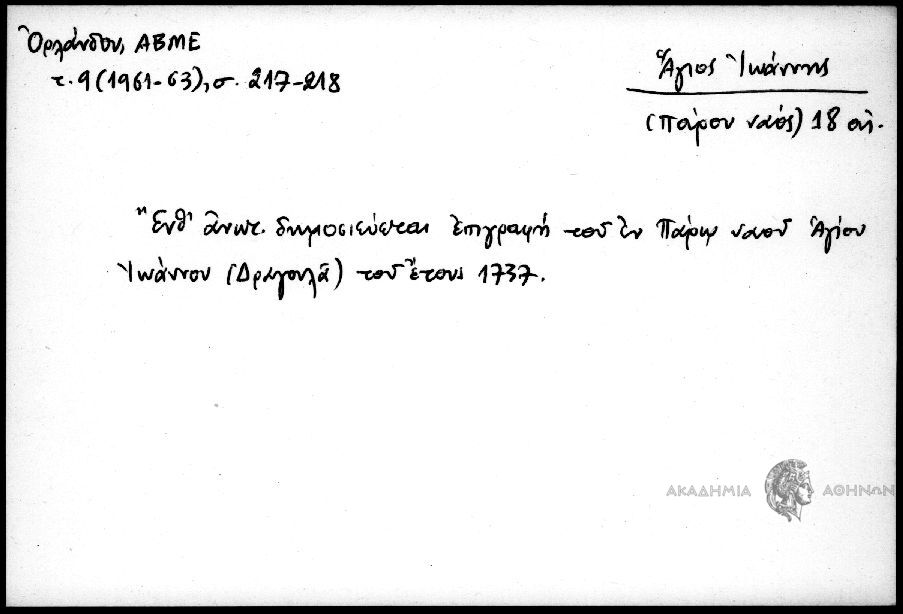 Ὀρλάνδου, ΑΒΜΕ
τ. 9 (1961-63), σ. 217-218
Ἅγιος Ἰωάννης
(Πάρου ναός) 18 αἰ.
Ἔνθ' ἀνωτ. δημοσιεύεται ἐπιγραφή τοῦ ἐν Πάρῳ ναοῦ Ἁγίου
Ἰωάννου (Δραγουλᾶ) τοῦ ἔτους 1737.
ΑΚΑΔΗΜΙΑ ΑΘΗΝΩΝ